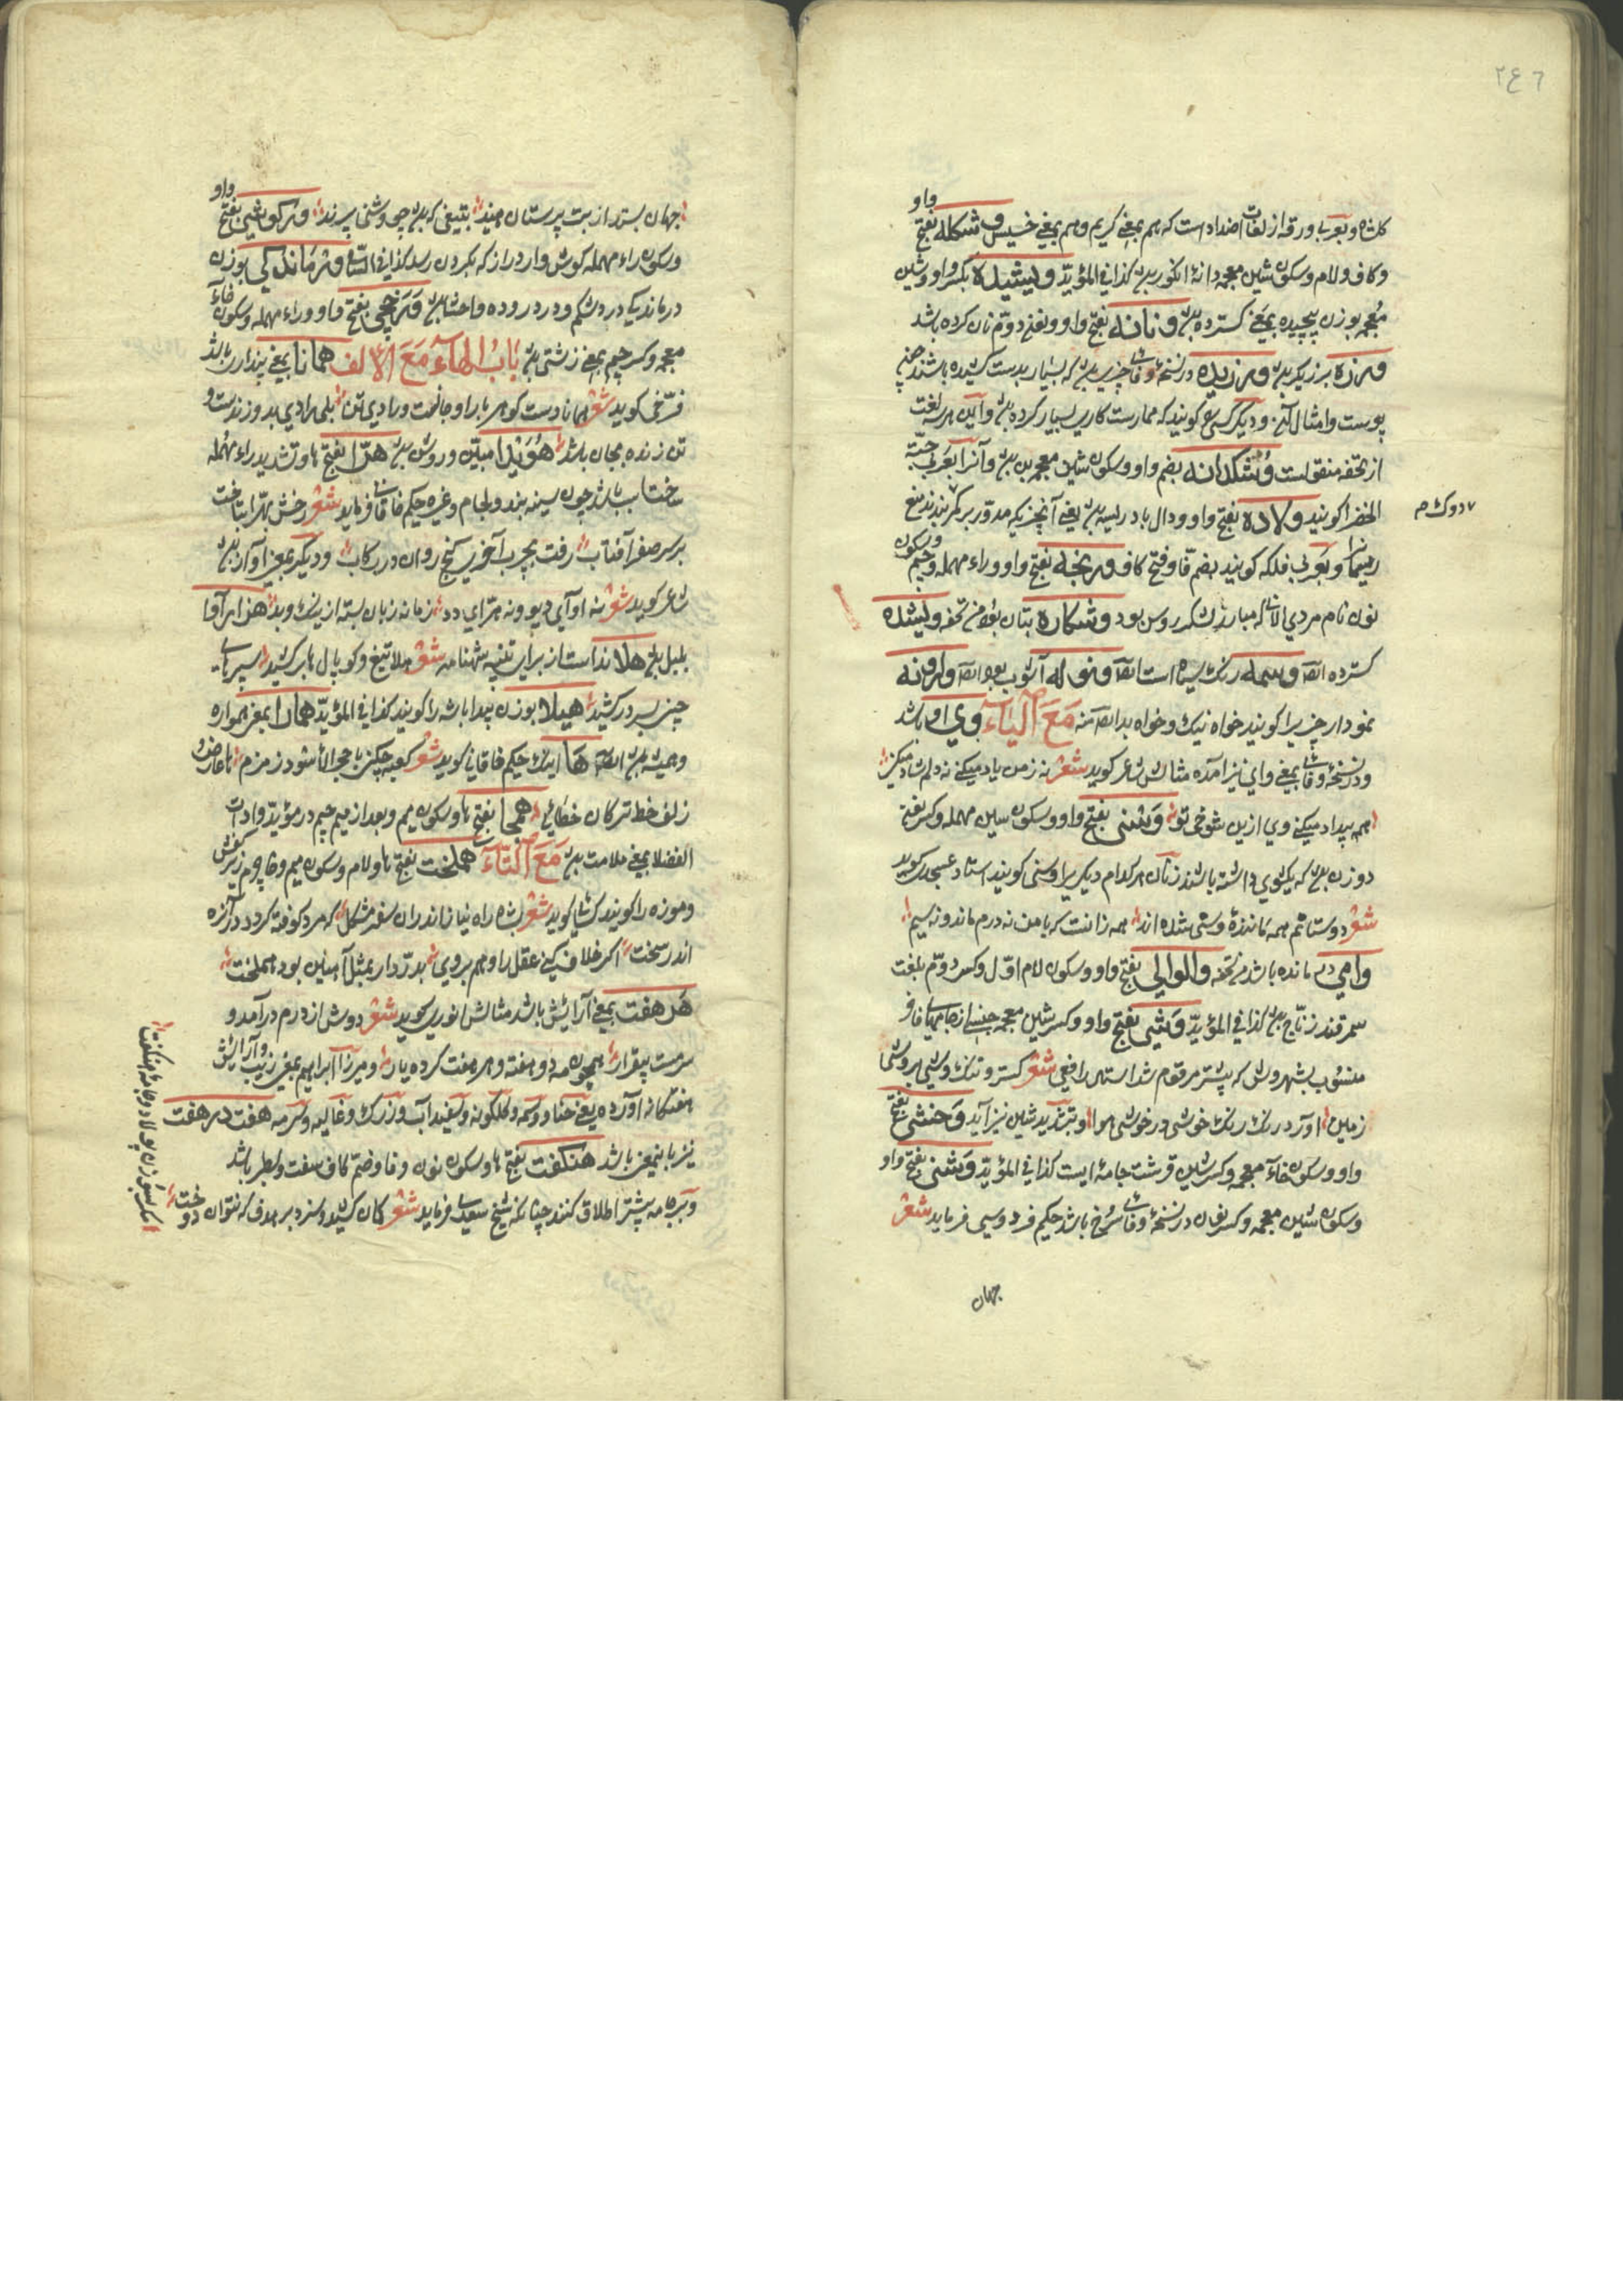 ٢٤٦
واو
کلشاه و بعربا ورقه از لغات اضداد است که هم بمعنی کریم و هم بمعنی خسیس وشکله بفتح
وکاف ولام وسکون شین معجمه دانهٔ انکور بود کذا فی المؤیّد ولیشیده بکسر واو وشین
معجمه بوزن پیچیده بمعنی کسترده بود ونانه بفتح واو ونون دوّم نان کرده باشد
ورزه برزیکر بود ورزیده در نسخهٔ وفائی چیزی بود که بسیار بدست کشیده باشند چون
پوست وامثال آن ودیگر کسی کویند که ممارست کاری بسیار کرده بود واین هر سه لغت
از تحفه منقولست وشکدانه بضم واو وسکون شین معجمه بن بود وآنرا بعربی حبّة
الخضرا کویند ولاده بفتح واو ودال بادریسه بود یعنی آنچیزیکه مدوّر بر کمر بندند
دوک م
ریسمانرا وبعربی فلکه کویند بضم فا وفتح کاف ورنجه بفتح واو وراء مهمله وجیم
وسکون
نون نام مردی الانی که مبارز لشکر روس بود وشکاره بتان بود من تحفه ولیشده
کسترده ایضا وسمه رنک سیاه است ایضا ونوله آشوب بود ایضا واروانه
نمودار چیزیرا کویند خواه نیک وخواه بد ایضا منه مَعَ الیَآء وی او باشد
ودر نسخهٔ وفائی بمعنی وای نیز آمده مثالش شاعر کوید شعر نه ز من یاد میکنی نه دلم شاد میکنی
همه بیداد میکنی وی ازین شوخی تو وَسْنی بفتح واو وسکون سین مهمله وکسر نون
دو زن بود که یکشوی داشته باشند زنان هر کدام دیکریرا وسنی کویند استاد عسجدی کوید
شعر دوستانم همه ماننده وسنی شده اند همه زانست که با من نه درم ماند ونه سیم
وامی در مانده باشد من تحفه والوالی بفتح واو وسکون لام اوّل وکسر دوّم بلغت
سمرقند زنّاج بود کذا فی المؤیّد وَشی بفتح واو وکسر شین معجمه جنسی از جامهای فاخر
منسوب بشهر وش که پیشتر مرقوم شد استاد رافعی شعر کسترد تنک وشی بر وشی
زمین آورد رنک رنک خوشی در خوشی هوا وبتشدید شین نیز آید وَخشی بفتح
واو وسکون خاء معجمه وکسر شین قرشت جامهٔ ایست کذا فی المؤیّد وَشنی بفتح واو
وسکون شین معجمه وکسر نون در نسخهٔ وفائی سرخ باشد حکیم فردوسی فرماید شعر
جهان
واو
جهان بستد از بت پرستان هند بتیغی که بد چو وشنی پرند ورکوشی بفتح
وسکون راء مهمله کوش وار دراز که بکردن رسد کذا فی السامی ورماندکی بوزن
درماندیکی درد شکم ودرد روده واحشا بود وَرَخجی بفتح واو وراء مهمله وسکون خاء
معجمه وکسر جیم بمعنی زشتی بود بَابُ الهآء مَعَ الألف همانا بمعنی پنداری باشد
فرّخی کوید شعر همانا دست کوهر بار او جانست ورادی تن بلی رادی بدو زندست و
تن زنده بجان باشد هُوَیْدا مبیّن وروشن بود هرّا بفتح ها وتشدید راء مهمله
ساخت اسب باشد چون سینه بند ولجام وغیره حکیم خاقانی فرماید شعر رخش بهرّا بتاخت
بر سر صفر آفتاب رفت بچرب آخوری کنج روان در رکاب ودیگر بمعنی آواز بود
شاعر کوید شعر نه آوای دیو ونه هرّای دد زمانه زبان بسته از نیک وبد هزار آوا
بلبل بود هلا نداست از برای تنبیه شهنامه شعر هلا تیغ وکوپال ها بر کشید سپرهای
چینی بسر در کشید هیلا بوزن پیدا باشه را کویند کذا فی المؤیّد همارا بمعنی همواره
وهمیشه بود ایضا ها اینک حکیم خاقانی کوید شعر
زلف خط ترکان خطائی همجا بفتح ها وسکون میم وبعد از میم جیم در مؤیّد وادات
الفضلا بمعنی ملامت بود مَعَ التّآء هملخت بفتح ها ولام وسکون میم وخا چرم زیر کفش
وموزه را کویند کسائی کوید شعر بشاه راه نیاز اندران سفر مشکال که مرد کوفته کردد دران ره
اندر سخت اکر خلاف کنی عقل را وهم بروی بدرّد ار بمثل آهنین بود هملخت
هَر هفت بمعنی آرایش باشد مثالش انوری کوید شعر دوش از درم درآمد و
سرمست بیقرار همچون مه دو هفته وهر هفت کرده یار ومیرزا ابراهیم بمعنی زیب وآرایش
هفتکانه آورده یعنی حنا ووسمه وکلکونه وسفیداب وزرک وغالیه وسرمه هفت در هفت
نیز باینمعنی باشد هنکفت بفتح ها وسکون نون وفا وضم کاف سفت وسطبر باشد
وبرجامه بیشتر اطلاق کنند چنانکه شیخ سعدی فرماید شعر کان کشید ونزد بر هدف که نتوان دوخت
مکر بسوزن پولاد جامهٔ هنکفت